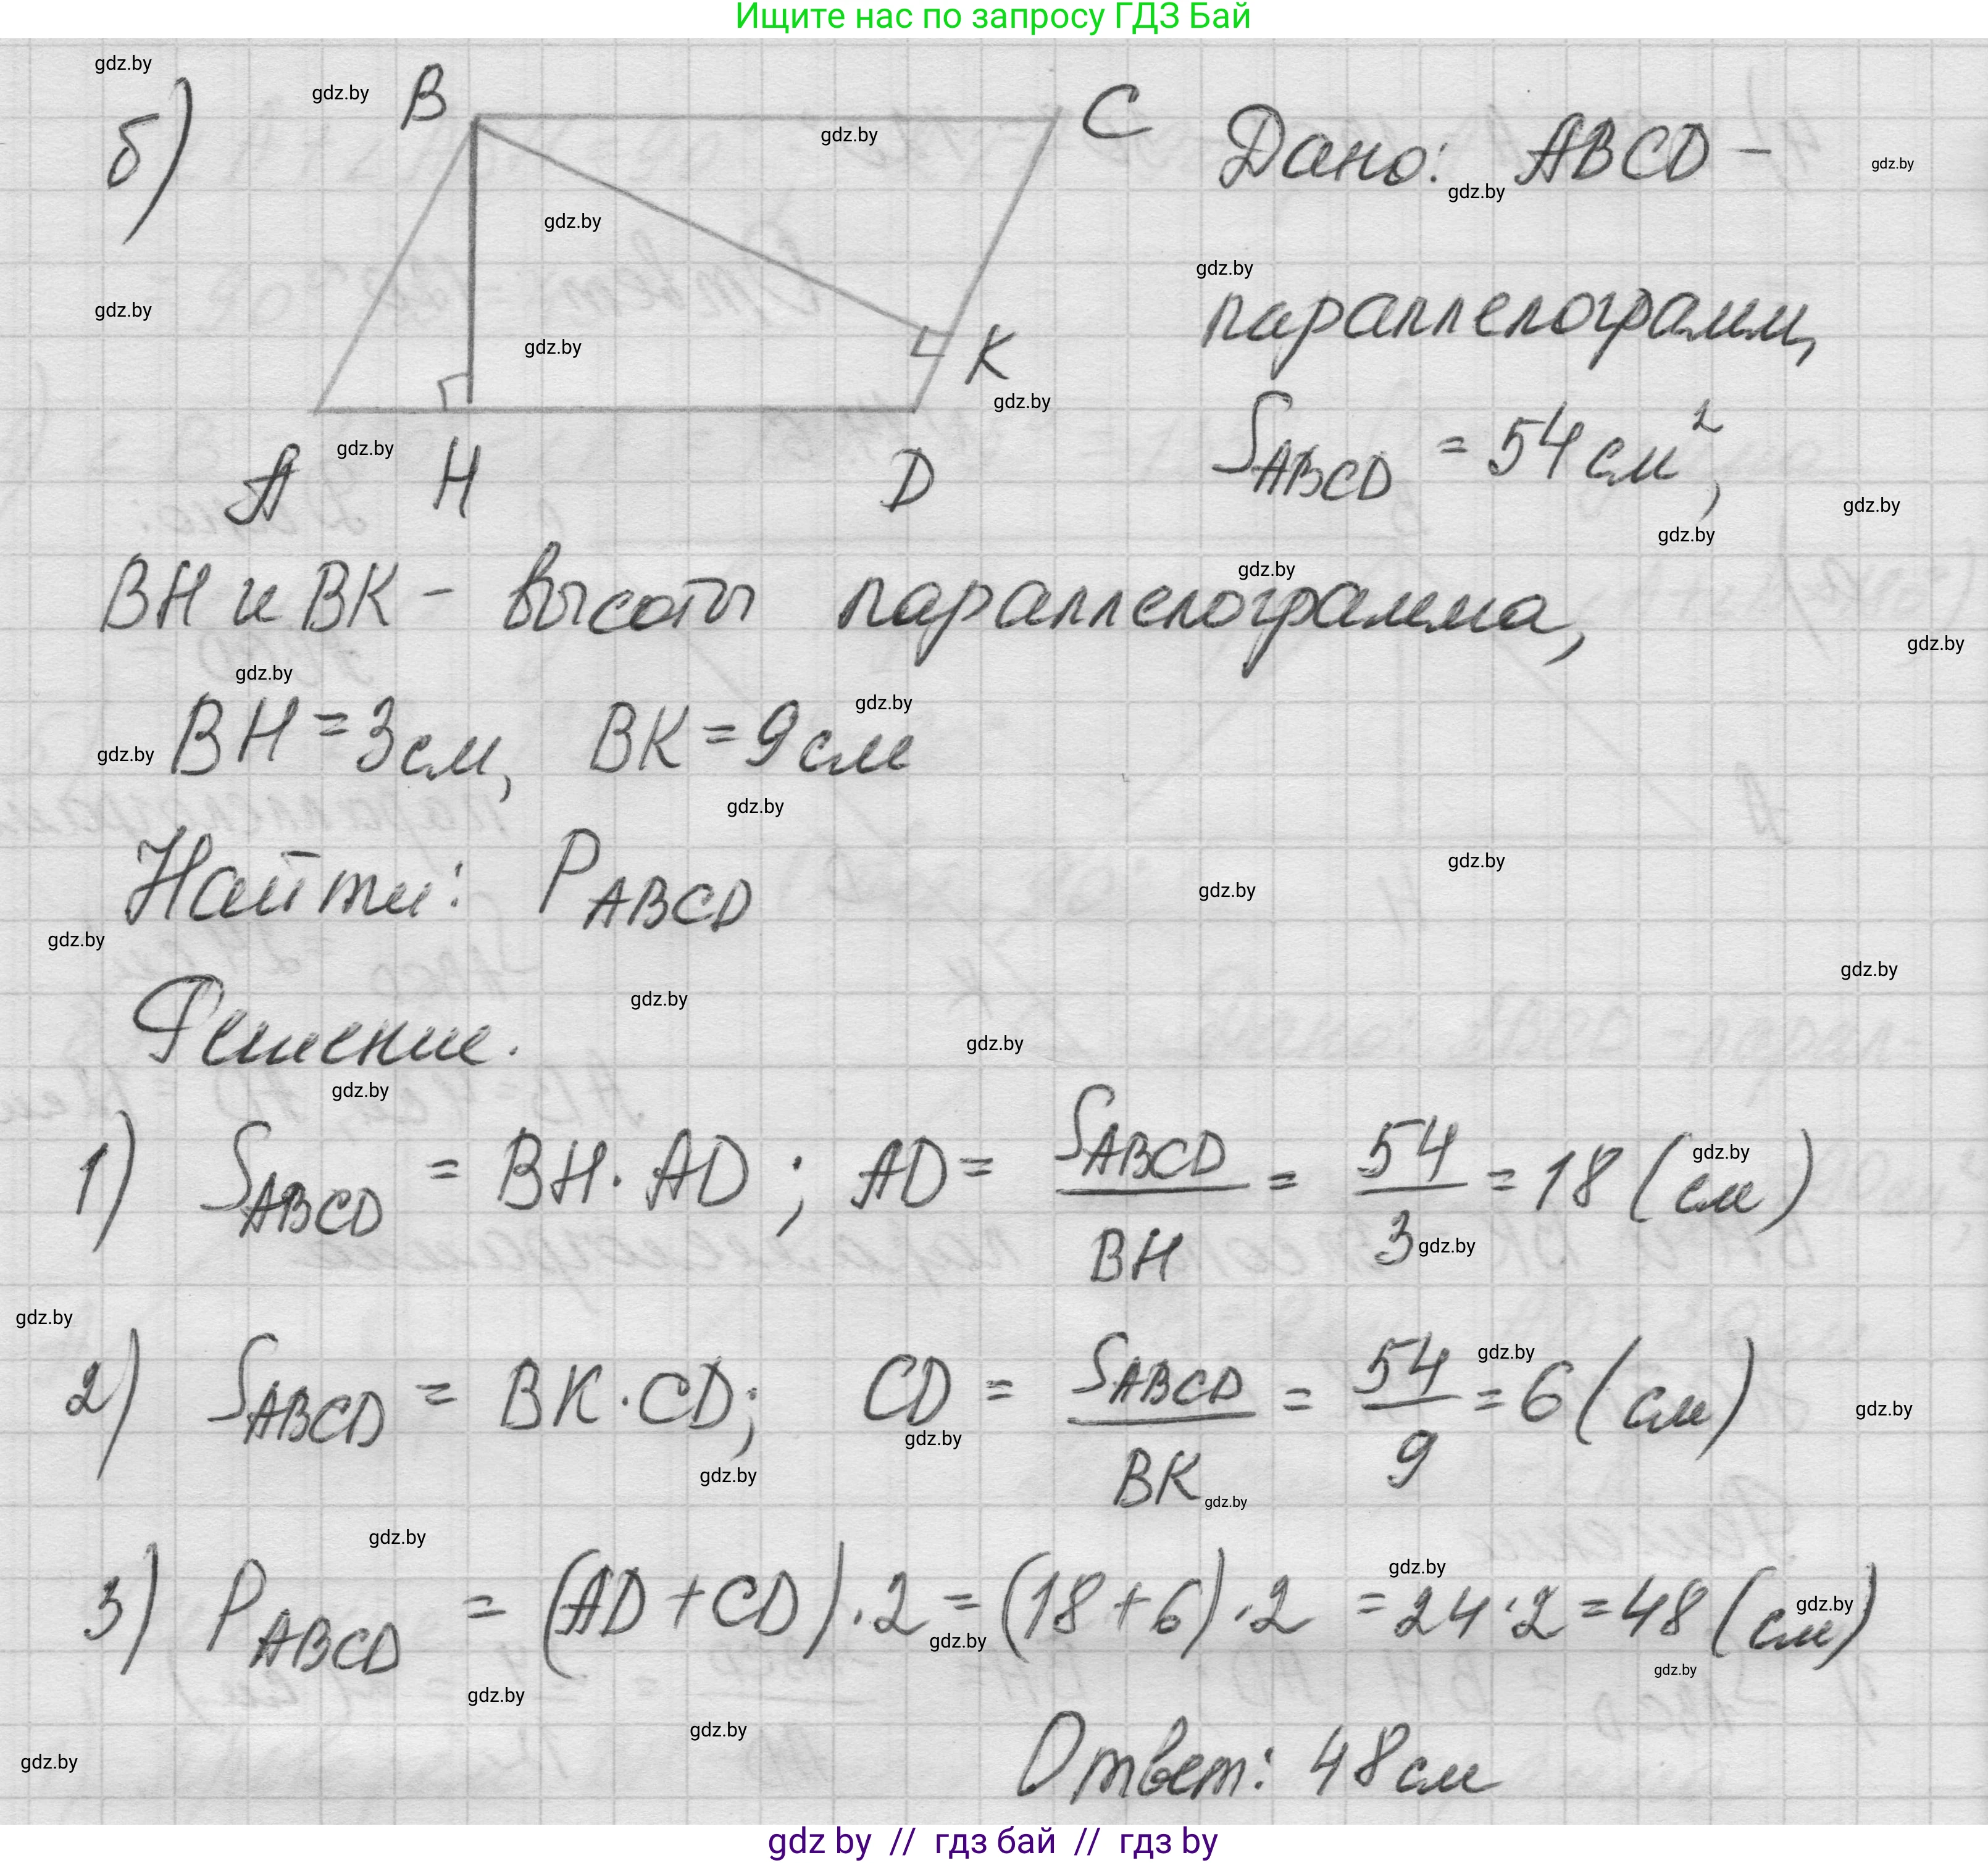 Ищите нас по запросу ГДЗ Бай
б)
B
C
K
A H D
Дано: ABCD –
параллелограмм,
S_ABCD = 54 см²,
BH и BK – высоты параллелограмма,
BH = 3 см, BK = 9 см
Найти: P_ABCD
Решение.
1) S_ABCD = BH · AD; AD = S_ABCD / BH = 54 / 3 = 18 (см)
2) S_ABCD = BK · CD; CD = S_ABCD / BK = 54 / 9 = 6 (см)
3) P_ABCD = (AD + CD) · 2 = (18 + 6) · 2 = 24 · 2 = 48 (см)
Ответ: 48 см
gdz by // гдз бай // гдз by